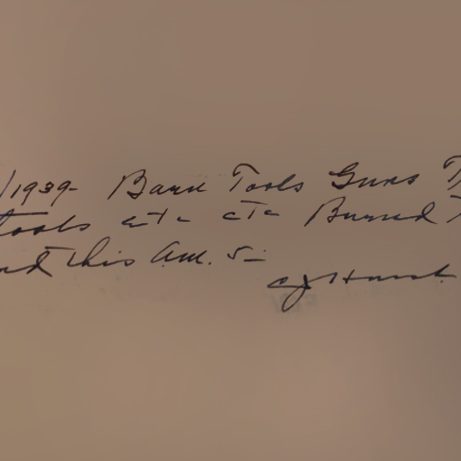 /1939- Barn Tools Guns
tools etc etc Burned
this A.M. 5-